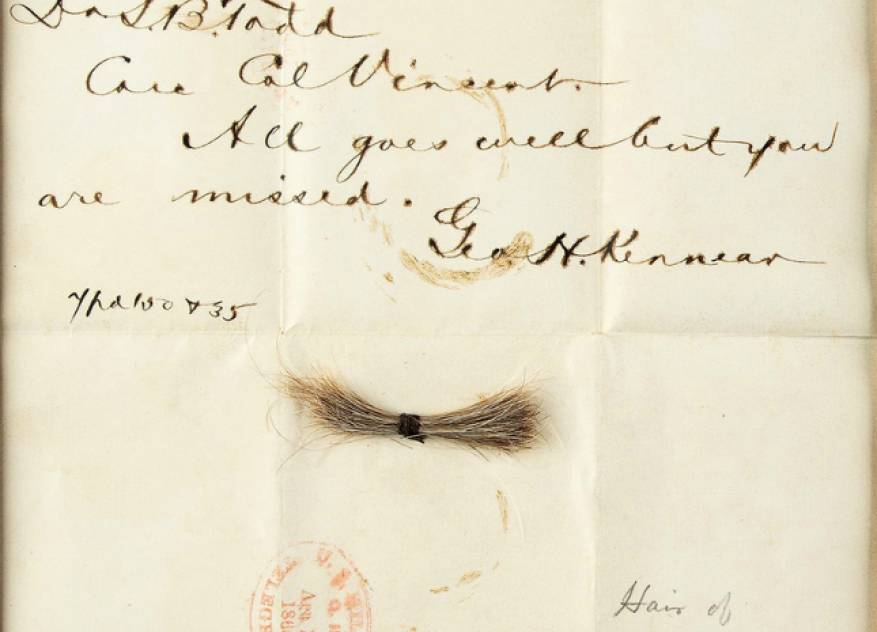 Dr L. B. Todd
Care Col Vincent.
All goes well but you
are missed.
Geo H. Kennear
& 35
U. S. MIL
TELEGR
Hair of